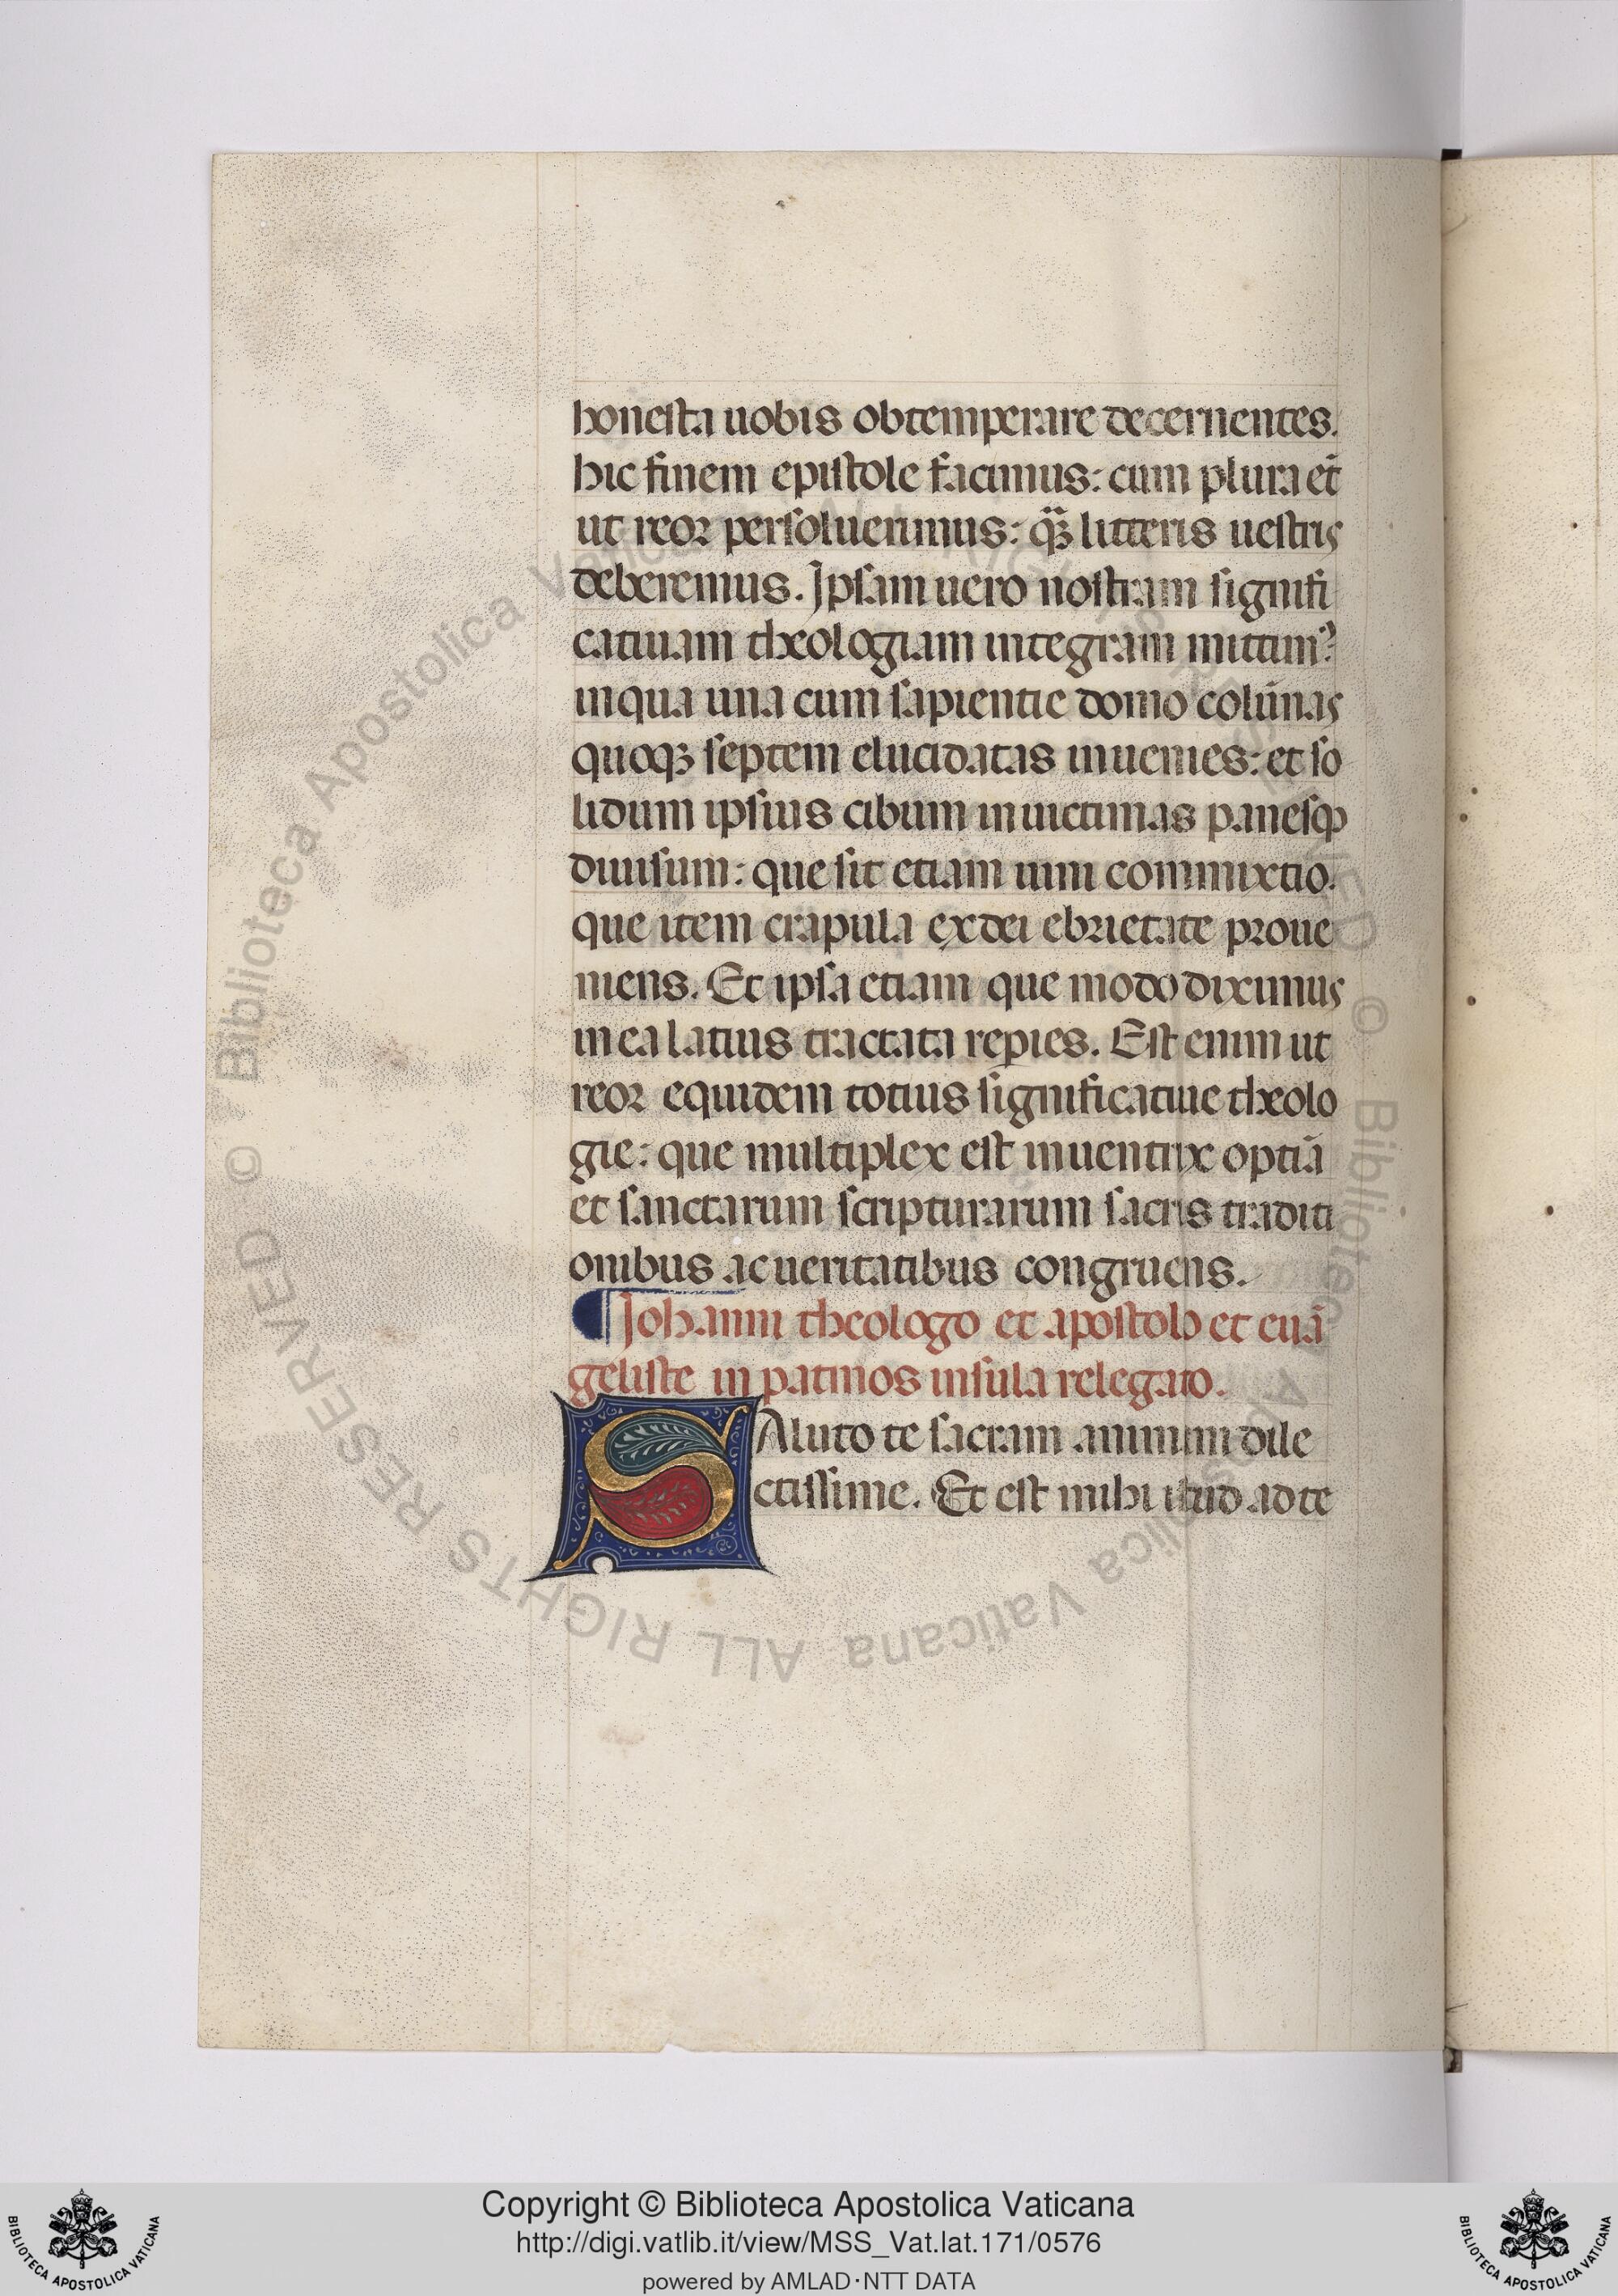 honesta uobis obtemperare decernentes.
hic finem epistole facimus: cum plura et̄
ut reor persoluerimus: qꝫ̃ litteris uestris
deberemus. Ipsam uero nostram signifi
catiuam theologiam integram mittim᷒:
in qua una cum sapientie domo colūnas
quoqꝫ septem elucidatas inuenies: et so
lidum ipsius cibum in uictimas panesqꝫ
diuisum: que sit etiam uini commixtio.
que item crapula ex dei ebrietate proue
niens. Et ipsa etiam que modo diximus
in ea latius tractata repies. Est enim ut
reor equidem totius significatiue theolo
gie: que multiplex est inuentrix optīa
et sanctarum scripturarum sacris traditi
onibus ac ueritatibus congruens.
¶ Iohanni theologo et apostolo et euā
geliste in patmos insula relegato.
SAluto te sacram animam dile
ctissime. Et est mihi istud ad te
© Biblioteca Apostolica Vaticana ALL RIGHTS RESERVED © Biblioteca Apostolica Vaticana ALL RIGHTS RESERVED
Copyright © Biblioteca Apostolica Vaticana
http://digi.vatlib.it/view/MSS_Vat.lat.171/0576
powered by AMLAD·NTT DATA
BIBLIOTECA APOSTOLICA VATICANA
BIBLIOTECA APOSTOLICA VATICANA